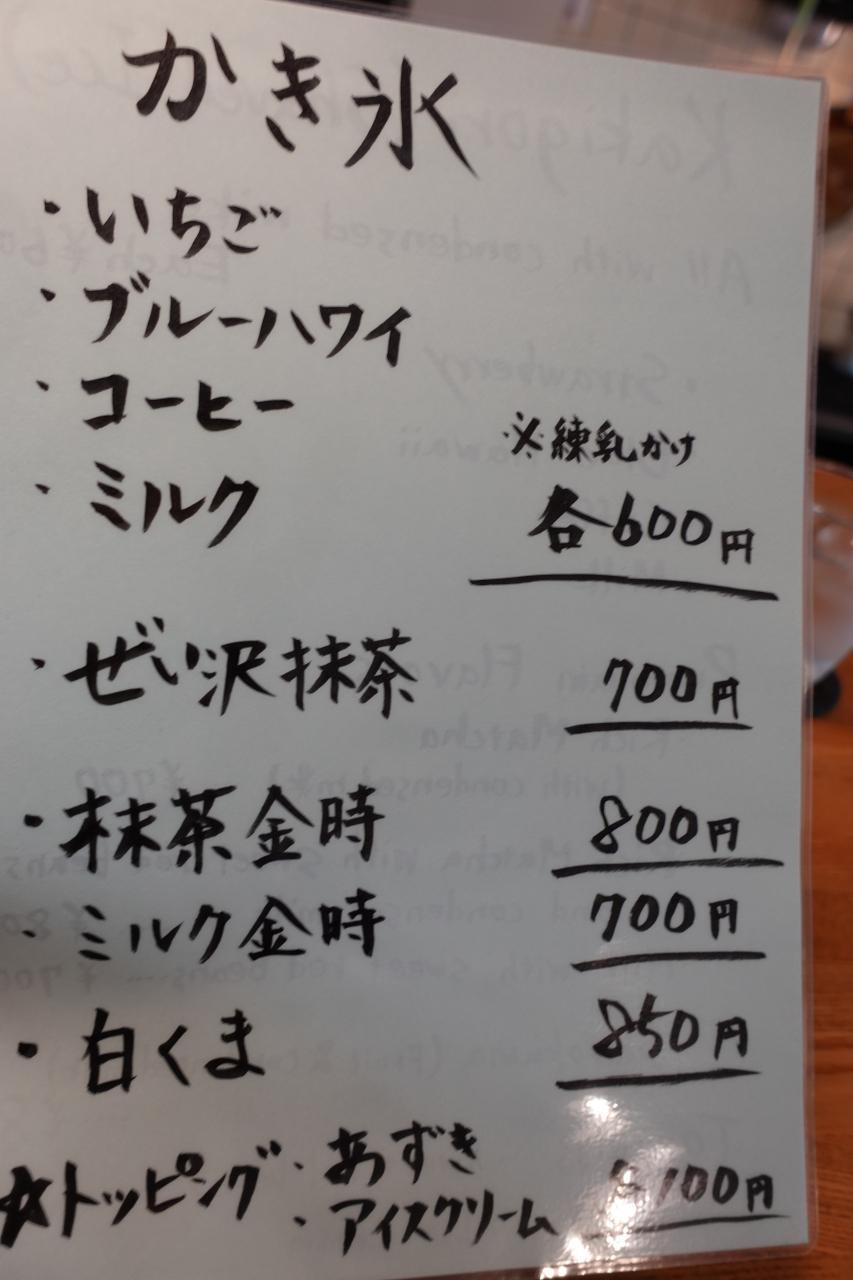 かき氷
・いちご
・ブルーハワイ
・コーヒー
・ミルク
※練乳かけ
各600円
・ぜい沢抹茶 700円
・抹茶金時 800円
・ミルク金時 700円
・白くま 850円
☆トッピング ・あずき
・アイスクリーム 100円